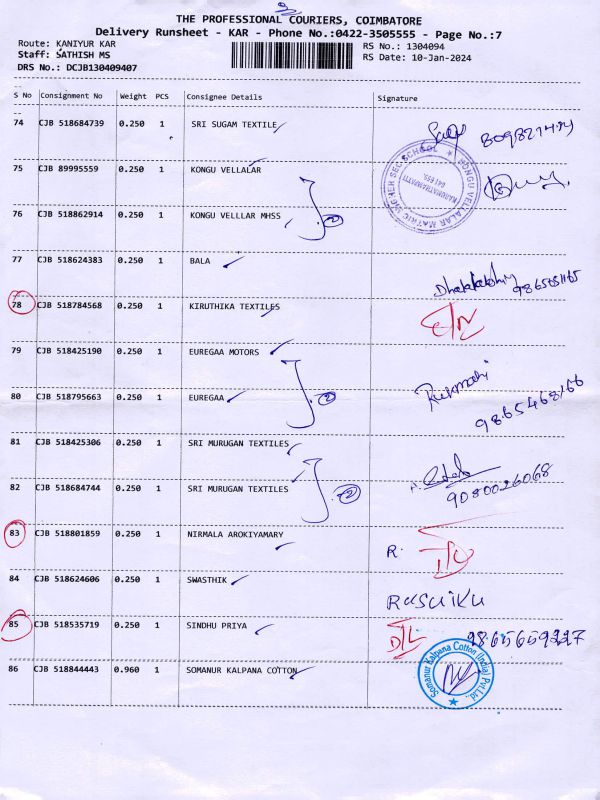 THE PROFESSIONAL COURIERS, COIMBATORE
Delivery Runsheet - KAR - Phone No.:0422-3505555 - Page No.:7
Route: KANIYUR KAR RS No.: 1304094
Staff: SATHISH MS RS Date: 10-Jan-2024
DRS No.: DCJB130409407
S No Consignment No Weight PCS Consignee Details Signature
74 CJB 518684739 0.250 1 SRI SUGAM TEXTILE
75 CJB 89995559 0.250 1 KONGU VELLALAR
KONGU VELLALAR MATRIC HIGHER SEC SCHOOL
641 659.
76 CJB 518862914 0.250 1 KONGU VELLLAR MHSS 2
77 CJB 518624383 0.250 1 BALA
78 CJB 518784568 0.250 1 KIRUTHIKA TEXTILES
79 CJB 518425190 0.250 1 EUREGAA MOTORS
80 CJB 518795663 0.250 1 EUREGAA 2 9865468166
81 CJB 518425306 0.250 1 SRI MURUGAN TEXTILES
82 CJB 518684744 0.250 1 SRI MURUGAN TEXTILES 2 9080026068
83 CJB 518801859 0.250 1 NIRMALA AROKIYAMARY R.
84 CJB 518624606 0.250 1 SWASTHIK
85 CJB 518535719 0.250 1 SINDHU PRIYA D/L
86 CJB 518844443 0.960 1 SOMANUR KALPANA COTTON
Somanur Kalpana Cotton (India) Pvt Ltd.,